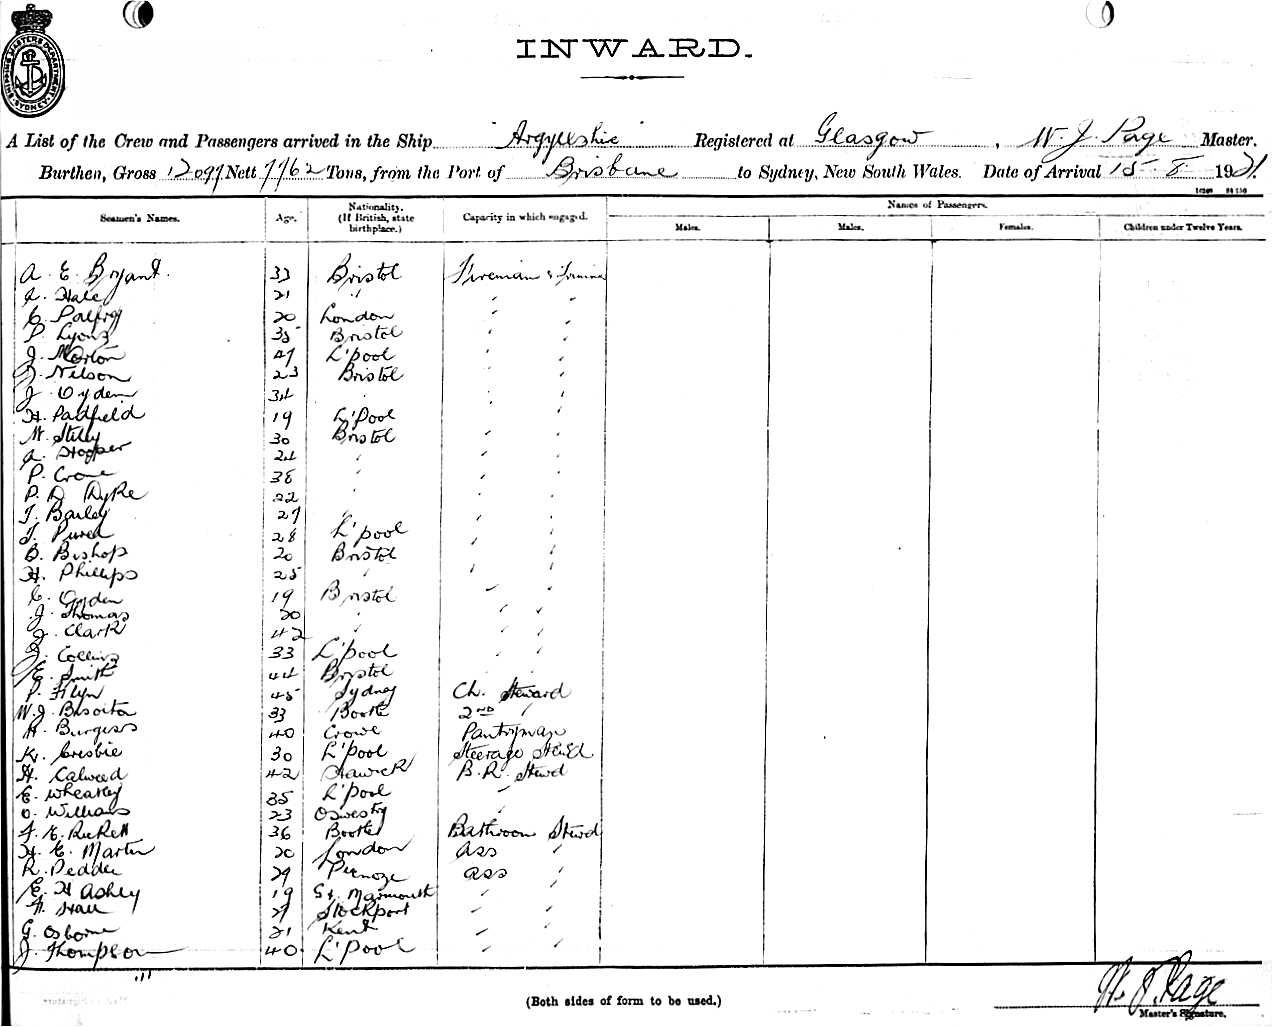 SHIPPING MASTERS DEPARTMENT SYDNEY
INWARD.
A List of the Crew and Passengers arrived in the Ship "Argyllshire" Registered at Glasgow, W. J. Page Master.
Burthen, Gross 12097 Nett 7762 Tons, from the Port of Brisbane to Sydney, New South Wales. Date of Arrival 15 - 8 1921.
Seamen's Names. Age. Nationality. (If British, state birthplace.) Capacity in which engaged. Names of Passengers.
Males. Males. Females. Children under Twelve Years.
A. E. Bryant. 33 Bristol Fireman & Trimmer
A. Hale 21 " " "
C. Palfrey 20 London " "
P. Lyons 35 Bristol " "
J. Morton 47 L'pool " "
J. Nelson 23 Bristol " "
J. Ogden 34 " " "
H. Padfield 19 L'Pool " "
W. Stilly 30 Bristol " "
A. Hopper 24 " " "
P. Crone 38 " " "
P. D. Dyke 22 " " "
T. Bailey 27 " " "
T. 28 L'pool " "
B. Bishop 20 Bristol " "
H. Phillips 25 " " "
C. Ogden 19 Bristol " "
J. Thomas 20 " " "
J. Clark 42 " " "
J. Collins 33 L'pool " "
E. Smith 44 Bristol " "
P. Flyn 45 Sydney Ch. Steward
W. J. 33 Bootle 2nd "
H. Burgess 40 Crowe Pantryman
K. Crosbie 30 L'pool Steerage Stewd
H. Calweed 42 Hawick B. R. Stewd
E. Wheatley 35 L'pool "
O. Williams 23 Oswestry "
F. E. Rickett 36 Bootle Bathroom Stewd
H. E. Martin 20 London Ass "
R. Pedder 29 Ass "
E. H Ashley 19 " "
F. Hall 27 Stockport " "
G. Osborne 21 Kent " "
J. Thompson 40 L'Pool " "
(Both sides of form to be used.)
W. J. Page
Master's Signature.